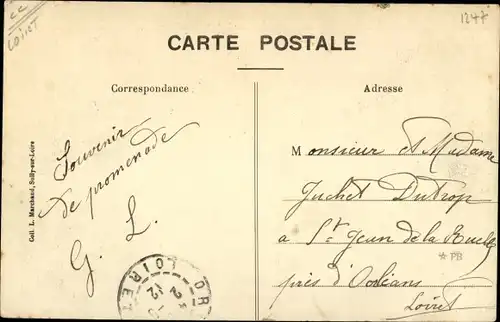 CC
LOIRET
1247
CARTE POSTALE
Correspondance
Adresse
Souvenir
de promenade
G. L.
Coll. L. Marchand, Sully-sur-Loire
Monsieur et Madame
Juchet Dutrop
a St Jean de la Ruelle
près d'Orléans
Loiret
* PB
OR
LOIRET
12